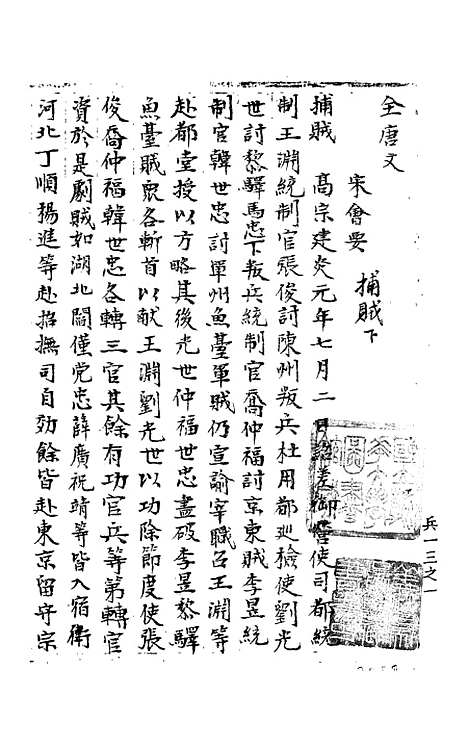 全唐文
宋會要
捕賊下
捕賊　高宗建炎元年七月二日詔差御營使司都統
制王淵統制官張俊討陳州叛兵杜用都巡檢使劉光
世討黎驛馬忠下叛兵統制官喬仲福討京東賊李昱統
制官韓世忠討單州魚臺軍賊仍宣諭宰職召王淵等
赴都堂授以方略其後光世仲福世忠盡破李昱黎驛
魚臺賊衆各斬首以獻王淵劉光世以功除節度使張
俊喬仲福韓世忠各轉三官其餘有功官兵等第轉官
資於是劇賊如湖北閻僅党忠薛廣祝靖等皆入宿衛
河北丁順揚進等赴招撫司自効餘皆赴東京留守宗
兵一三之一